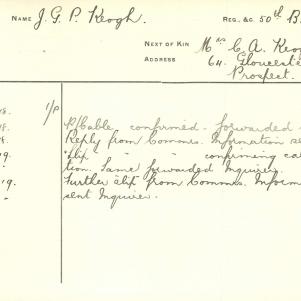 NAME J. G. P. Keogh. REG., &C. 50th B
NEXT OF KIN Mrs C. A. Keog
ADDRESS 64 Gloucest
Prospect.
1/P P/Cable confirmed - forwarded
Reply from Commrs. Information se
"slip " " confirming ca
19. tion. Same forwarded Inquirer.
19. Further slip from Commrs. Inform
sent Inquirer.